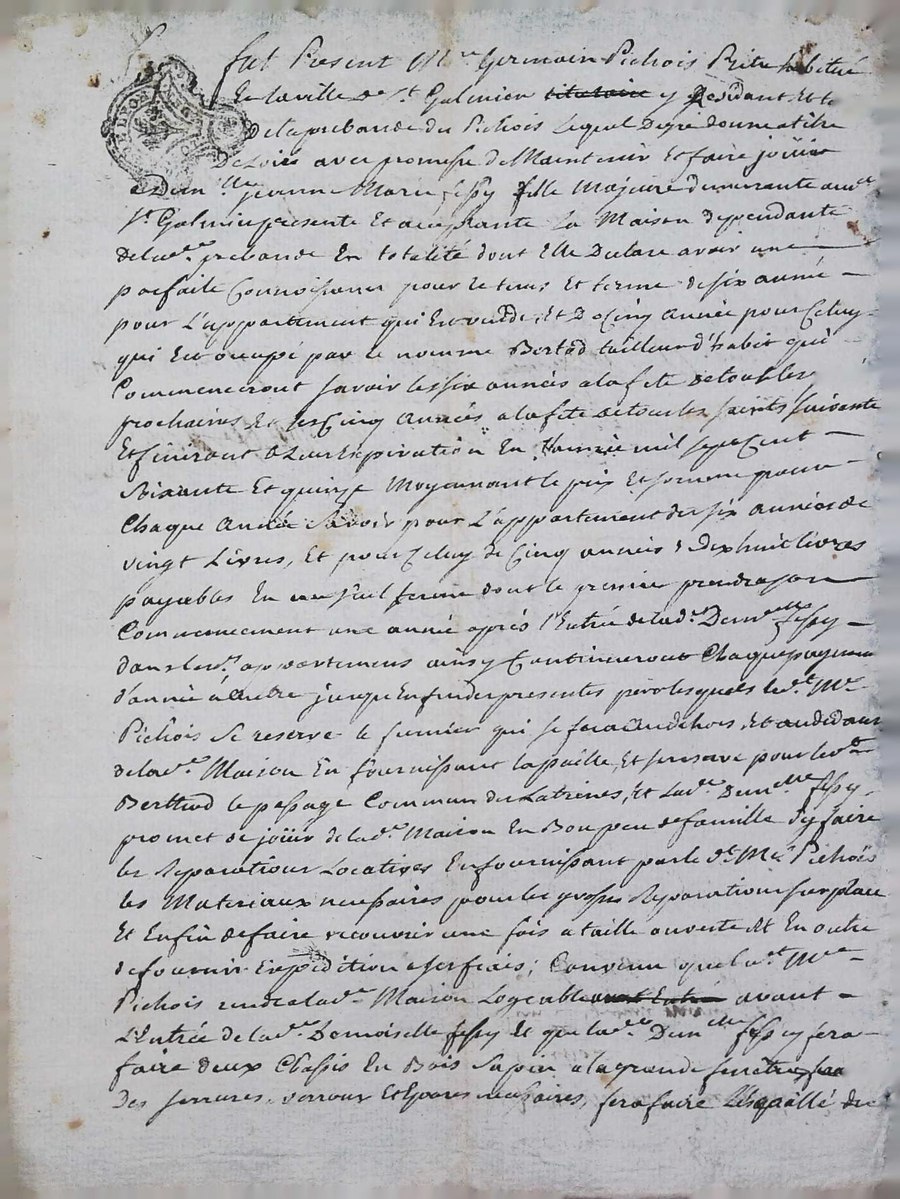 fut Present Mre Germain Pichois Pretre habitué
En la ville de St Galmier titulaire y Residant Et
De la prebande du Pichois lequel De gré donne a titre
De Loüé avec promesse de Maintenir Et faire joüir
a Demlle Jeanne Marie fessy fille Majeure demeurante aud.
St Galmier presente Et acceptante La Maison dependante
de lad.e prebande En totalité dont Elle Declare avoir une
parfaite Connoissance pour le tems Et terme de six année
pour L'appartement qui Est vuide, Et De Cinq année pour Celuy
qui Est occupé par le nommé Bertod tailleur d'habit qui
Commenceront savoir les six années a la fete de tous les
prochaines Et les Cinq années a la fete de tous les saints suivante
Et finiront a Leur Expiration En L'année mil sept Cent
Soixante Et quinze Moyennant le prix Et somme pour
Chaque année Savoir pour L'appartement des six années de
vingt Livres, Et pour Celuy de Cinq années, Dix huit livres
payables En un seul terme dont le premier prendra son
Commencement une année apres l'Entrée de lad.e Demlle fessy
dans lesd. appartemens ainsy Continueront Chaque payement
d'année à autre jusqu'En fin des presentes lequels led.t Mre
Pichois Se reserve le fumier qui se fera Au dehors, Et au dedans
de lad.e Maison En fournissant la paille, Et sera pour led.
Berthod le passage Commun des Latrines, Et Lad.e Demlle fessy
promet de joüir de lad.e Maison En Bon pere de famille d'y faire
les Reparations Locatives En fournissant par le d.t Mre Pichois
les Materiaux necessaires pour les grosses Reparations sur place
Et Enfin de faire recouvrir une fois a taille ouverte Et En outre
de fournir Expedition a ses frais; Convenu que led.t Mre
Pichois rendra lad.e Maison Logeable avant Entrée avant
L'Entrée de lad.e Demoiselle fessy Et que lad.e Demlle fessy fera
faire deux Chassis En Bois Sapin a la grande fenêtre
Des serrures, verroux Et necessaires, fera faire de